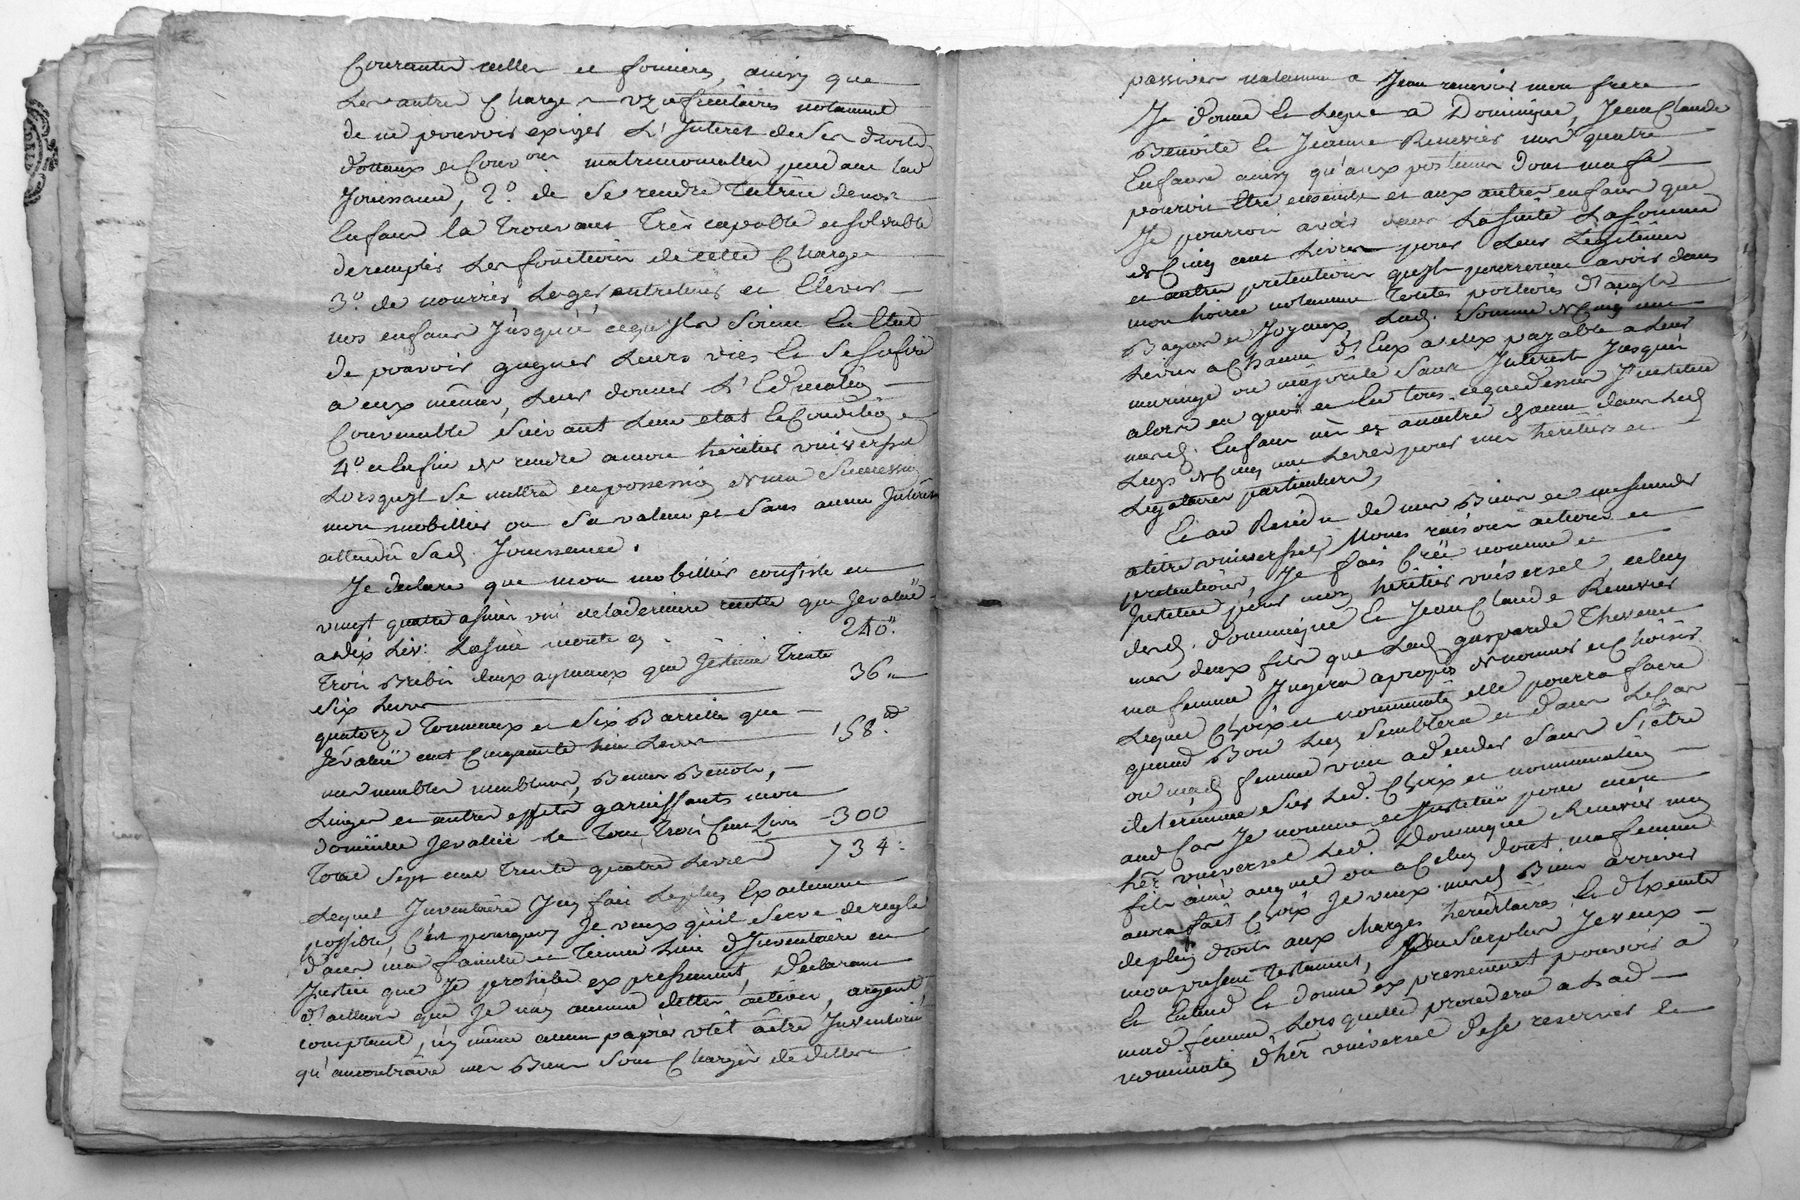 Courantes celles et foncieres, ainsy que
Les autres Charges uzufruitaires notament
de ne pouvoir exiger L'Interet de Ses droits
dotaux et conv.ons matrimonialles pendant lad
Jouissance, 2.o de Se rendre Tutrice de nos
Enfans la Trouvant Très capable et solvable
de remplir Les fonctions de cette Charge
3.o de nourrir, Loger, entretenir et Elever
nos enfans Jusqu'à ceque Ils Soient En Etat
de pouvoir gagner Leurs vies Et Se Sufire
a eux mêmes, Leur donner L'Education
Convenable Suivant Leur etat Et Condition
4.o et Enfin de rendre amon héritier universel
Lorsqu'il Se mettra en possession de ma Succession
mon mobillier ou Sa valeur, et Sans aucun Interêt
attendû Sad. Jouissance.
Je declare que mon mobillier consiste en
vingt quatre asnées vin de la derniere recolte que Jevaluë
a dix Liv: Lasnée monte 240"
Trois Brebis deux agneaux que Jestime Trente
Six Livres 36"
quatorze Tonneaux et Six Barrilles que
Jévaluë cent Cinquante huit Livres 158
mes meubles meublans, Benne Benots,
Linges et autres effets garnissants mon
domicile Jevaluë le Tout Trois Cent Livres 300
Total Sept cent Trente quatre Livres 734:
Lequel Inventaire J'ay fait Le plus Exactement
possible, C'est pourquoy Je veux qu'il Serve de regle
dans ma famille et Tienne Lieu d'Inventaire en
Justice que Je prohibe expressement, Declarant
d'ailleurs que Je n'ay aucune dettes actives, argent
comptant, n'y même aucun papier utêt âetre Inventorié
qu'aucontraire mes Biens Sont Chargés de dettes
passives notament a Jean renevier mon frere
Je donne Et Legue a Dominique, Jean Claude
Benoite Et Jeanne Renevier mes quatre
Enfans ainsy qu'aux postumes dont ma fe
pourroit Etre enceinte et aux autres enfans que
Je pourrois avoir dans Lasuite Lasomme
de Cinq cent Livres pour Leur Légitimes
et autres prétentions qu'ils pourroient avoir dans
mon hoirie notament Toutes portions d'augt
Bagues et Joyaux, Lad. Somme de Cinq cent
Livres a Chacun d'Eux a eux payable a Leur
mariage ou majorité Sans Interest Jusqu'
alors en quoi et En Tout ce que dessus J'institue
mesd. Enfans nés et anaitre chacun dans Led
Legs de Cinq cent Livres pour mes héritiers et
Légataires particuliers,
Et au Residu de mes Biens et
atitre universel, Noms raisons actions et
prétentions, Je fais Créé nomme et
Institue pour mon héritier universel, celuy
desd. dominique Et Jean Claude Renevier
mes deux fils que Lad gasparde Thevenet
ma femme Jugera apropos de nommer et Choisir
Lequel Choix et nomination elle pourra faire
quand Bon Luy Semblera et dans Lecas
ou mad femme vint adeceder sans S'être
determinée Sur Led. Choix et nomination
aud Cas Je nomme et Instituë pour mon
hér universel Led. Dominique Renevier mon
fils ainé auquel ou a Celuy dont ma femme
aura fait Choix Je veux mesd Biens arriver
de plein droits aux charges hereditaires Et d'Executer
mon present Testament, Au Surplus Je veux
Et Entend Et donne expressement pouvoir a
mad. femme Lorsquelle procedera a Lad
nomination d'hér universel dese reserver le